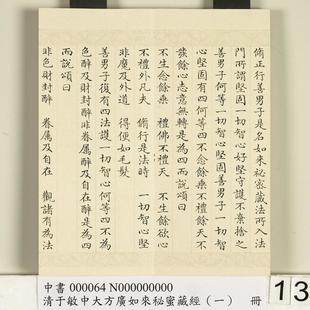 脩正行善男子是名如來祕密藏法所入法
門所謂堅固一切智心好堅守護不棄捨之
善男子何等一切智心堅固善男子一切智
心堅固有四何等四不念餘乘不禮餘天不
發餘心志意無轉是為四而說頌曰
不生念餘乘 禮佛不禮天 不生餘欲心
不禮外凡夫 脩行是法時 一切智心堅
非魔及外道 得便如毛髮
善男子復有四法護一切智心何等四不為
色醉及財封醉非眷屬醉及自在醉是為四
而說頌曰
非色財封醉 眷屬及自在 觀諸有為法
中書 000064 N000000000
清于敏中大方廣如來祕蜜藏經(一) 冊
13